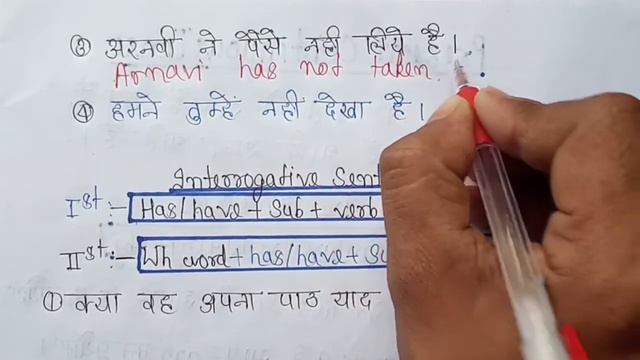 ③ अरनवी ने पैसे नही लिये है।
Arnavi has not taken
④ हमने तुम्हें नही देखा है।
Interrogative Sent
Ist :- Has/have + Sub + verb
IIst :- Wh word + has/have + Su
① क्या वह अपना पाठ याद